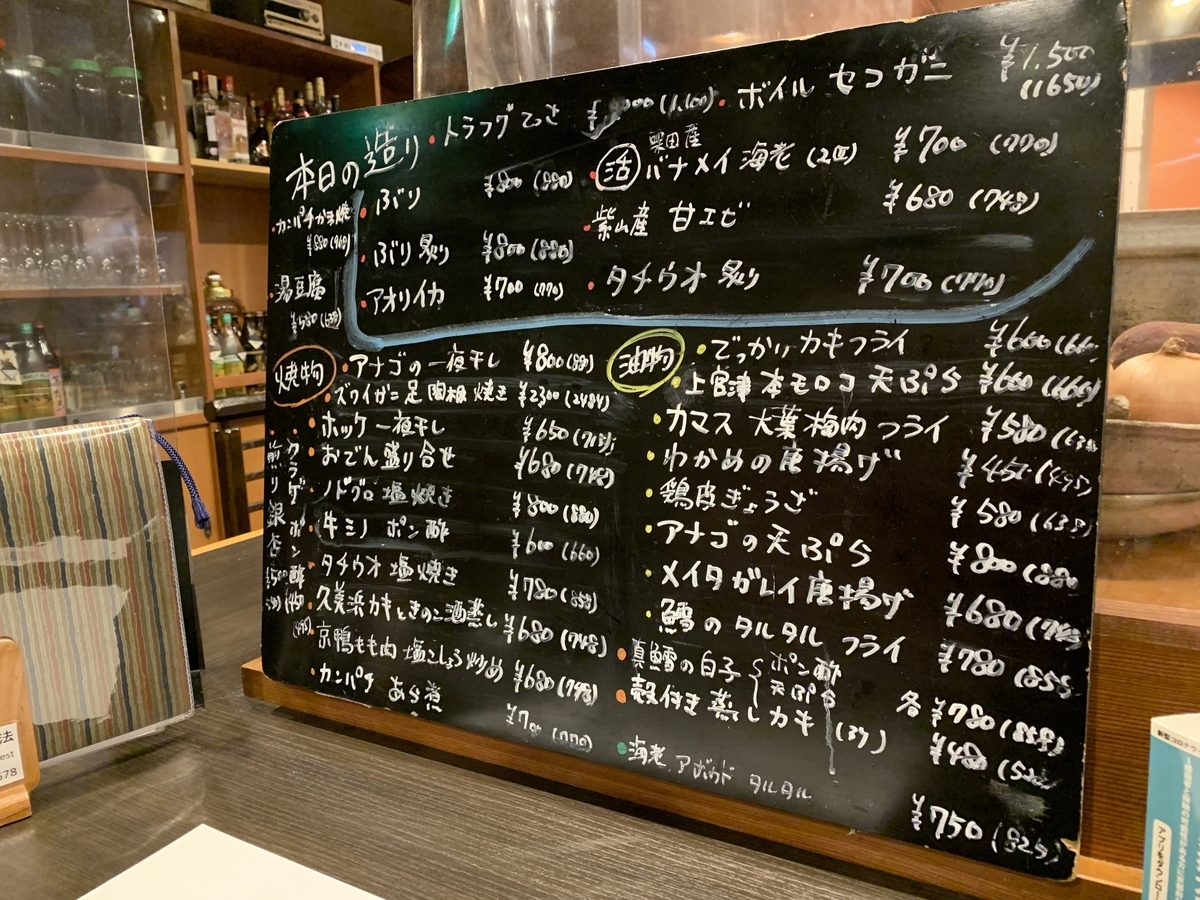 本日の造り
・トラフグてっさ
・ボイル セコガニ ¥1.500 (1650)
・ぶり ¥800 (880)
・ぶり炙り ¥800 (880)
・アオリイカ ¥700 (770)
・活 バナメイ海老 (2匹) ¥700 (770)
・柴山産 甘エビ ¥680 (748)
・タチウオ炙り ¥700 (770)
・カンパチかま焼
¥880 (968)
・湯豆腐
焼物
・アナゴの一夜干し ¥800 (880)
・ズワイガニ足 陶板焼き ¥2300
・ホッケ一夜干し ¥650 (715)
・おでん盛り合せ ¥680 (748)
・ノドグロ塩焼き ¥800 (880)
・牛ミノ ポン酢 ¥600 (660)
・タチウオ塩焼き ¥780 (858)
・久美浜カキときのこ酒蒸し ¥680 (748)
・京鴨もも肉 塩こしょう炒め ¥680 (748)
・カンパチ あら煮 ¥700 (770)
・クラゲポン酢
・煎り銀杏
油物
・でっかいカキフライ ¥600 (660
・上宮津本モロコ天ぷら ¥600 (660)
・カマス 大葉梅肉フライ ¥580 (638
・わかめの唐揚げ ¥450 (495)
・鶏皮ぎょうざ ¥580 (638)
・アナゴの天ぷら ¥800 (880
・メイタガレイ唐揚げ ¥680 (748
・鱈のタルタルフライ ¥780 (858
・真鱈の白子 ポン酢
天ぷら 各¥780 (858)
・殻付き蒸しカキ (3ヶ) ¥480 (528
・海老 アボカド タルタル ¥750 (825)